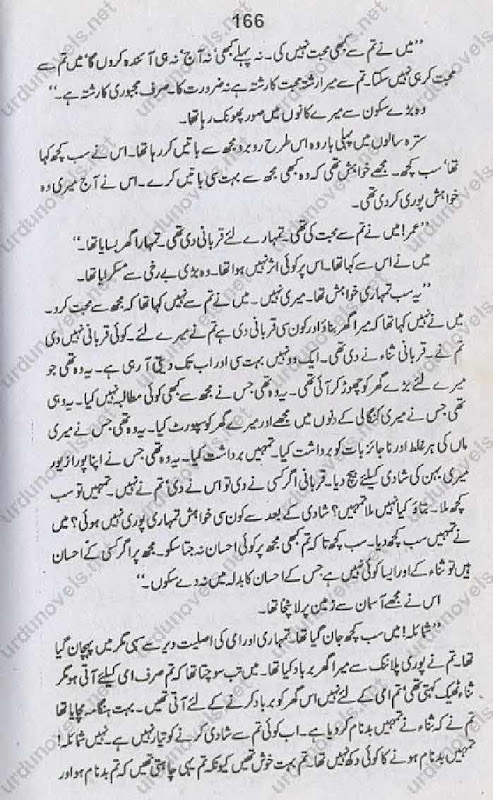 166
”میں نے تم سے کبھی محبت نہیں کی۔ نہ پہلے کبھی‘ نہ آج‘ نہ ہی آئندہ کروں گا‘ میں تم سے
محبت کر ہی نہیں سکتا۔ تم سے میرا رشتہ محبت کا رشتہ ہے نہ ضرورت کا۔ صرف مجبوری کا رشتہ ہے۔“
وہ بڑے سکون سے میرے کانوں میں صور پھونک رہا تھا۔
سترہ سالوں میں پہلی بار وہ اس طرح روبرو مجھ سے باتیں کر رہا تھا۔ اس نے سب کچھ کہا
تھا‘ سب کچھ۔ مجھے خواہش تھی کہ وہ کبھی مجھ سے بہت سی باتیں کرے۔ اس نے آج میری وہ
خواہش پوری کر دی تھی۔
”عمر! میں نے تم سے محبت کی تھی۔ تمہارے لئے قربانی دی تھی۔ تمہارا گھر بسایا تھا۔“
میں نے اس سے کہا تھا۔ اس پر کوئی اثر نہیں ہوا تھا۔ وہ بڑی بے رخی سے مسکرایا تھا۔
”یہ سب تمہاری خواہش تھا۔ میری نہیں۔ میں نے تم سے نہیں کہا تھا کہ مجھ سے محبت کرو۔
میں نے نہیں کہا تھا کہ میرا گھر بناؤ اور کون سی قربانی دی ہے تم نے میرے لئے۔ کوئی قربانی نہیں دی
تم نے۔ قربانی ثناء نے دی تھی۔ ایک دو نہیں بہت سی اور اب تک دیتی آ رہی ہے۔ یہ وہ تھی جو
میرے لئے بڑے گھر کو چھوڑ کر آئی تھی۔ یہ وہ تھی جس نے مجھ سے کبھی کوئی مطالبہ نہیں کیا۔ یہ وہی
تھی جس نے میری کنگالی کے دنوں میں مجھے اور میرے گھر کو سپورٹ کیا۔ یہ وہ تھی جس نے میری
ماں کی ہر غلط اور ناجائز بات کو برداشت کیا۔ تمہیں برداشت کیا۔ یہ وہ تھی جس نے اپنا پورا زیور
میری بہن کی شادی کیلئے بیچ دیا۔ قربانی اگر کسی نے دی تو اس نے دی‘ تم نے نہیں۔ تمہیں تو سب
کچھ ملا۔ بتاؤ کیا نہیں ملا تمہیں؟ شادی کے بعد سے کون سی خواہش تمہاری پوری نہیں ہوئی؟ میں
نے تمہیں سب کچھ دیا۔ سب کچھ تا کہ تم کبھی مجھ پر کوئی احسان نہ جتا سکو۔ مجھ پر اگر کسی کے احسان
ہیں تو ثناء کے اور ایسا کوئی نہیں ہے جس کے احسان کا بدلہ میں نہ دے سکوں۔“
اس نے مجھے آسمان سے زمین پر لا پٹخا تھا۔
”شمائلہ! میں سب کچھ جان گیا تھا۔ تمہاری اور امی کی اصلیت دیر سے سہی مگر میں پہچان گیا
تھا۔ تم نے پوری پلاننگ سے میرا گھر برباد کیا تھا۔ میں تب سوچتا تھا کہ تم صرف امی کیلئے آتی ہو مگر
ثناء ٹھیک کہتی تھی‘ تم امی کے لئے نہیں اس گھر کو برباد کرنے کے لئے آتی تھیں۔ بہت ہنگامہ مچایا تھا
تم نے کہ ثناء نے تمہیں بدنام کر دیا ہے۔ اب کوئی تم سے شادی کرنے کو تیار نہیں ہے۔ نہیں شمائلہ!
تمہیں بدنام ہونے کا کوئی دکھ نہیں تھا۔ تم بہت خوش تھیں کیونکہ تم یہی چاہتی تھیں کہ تم بدنام ہو اور